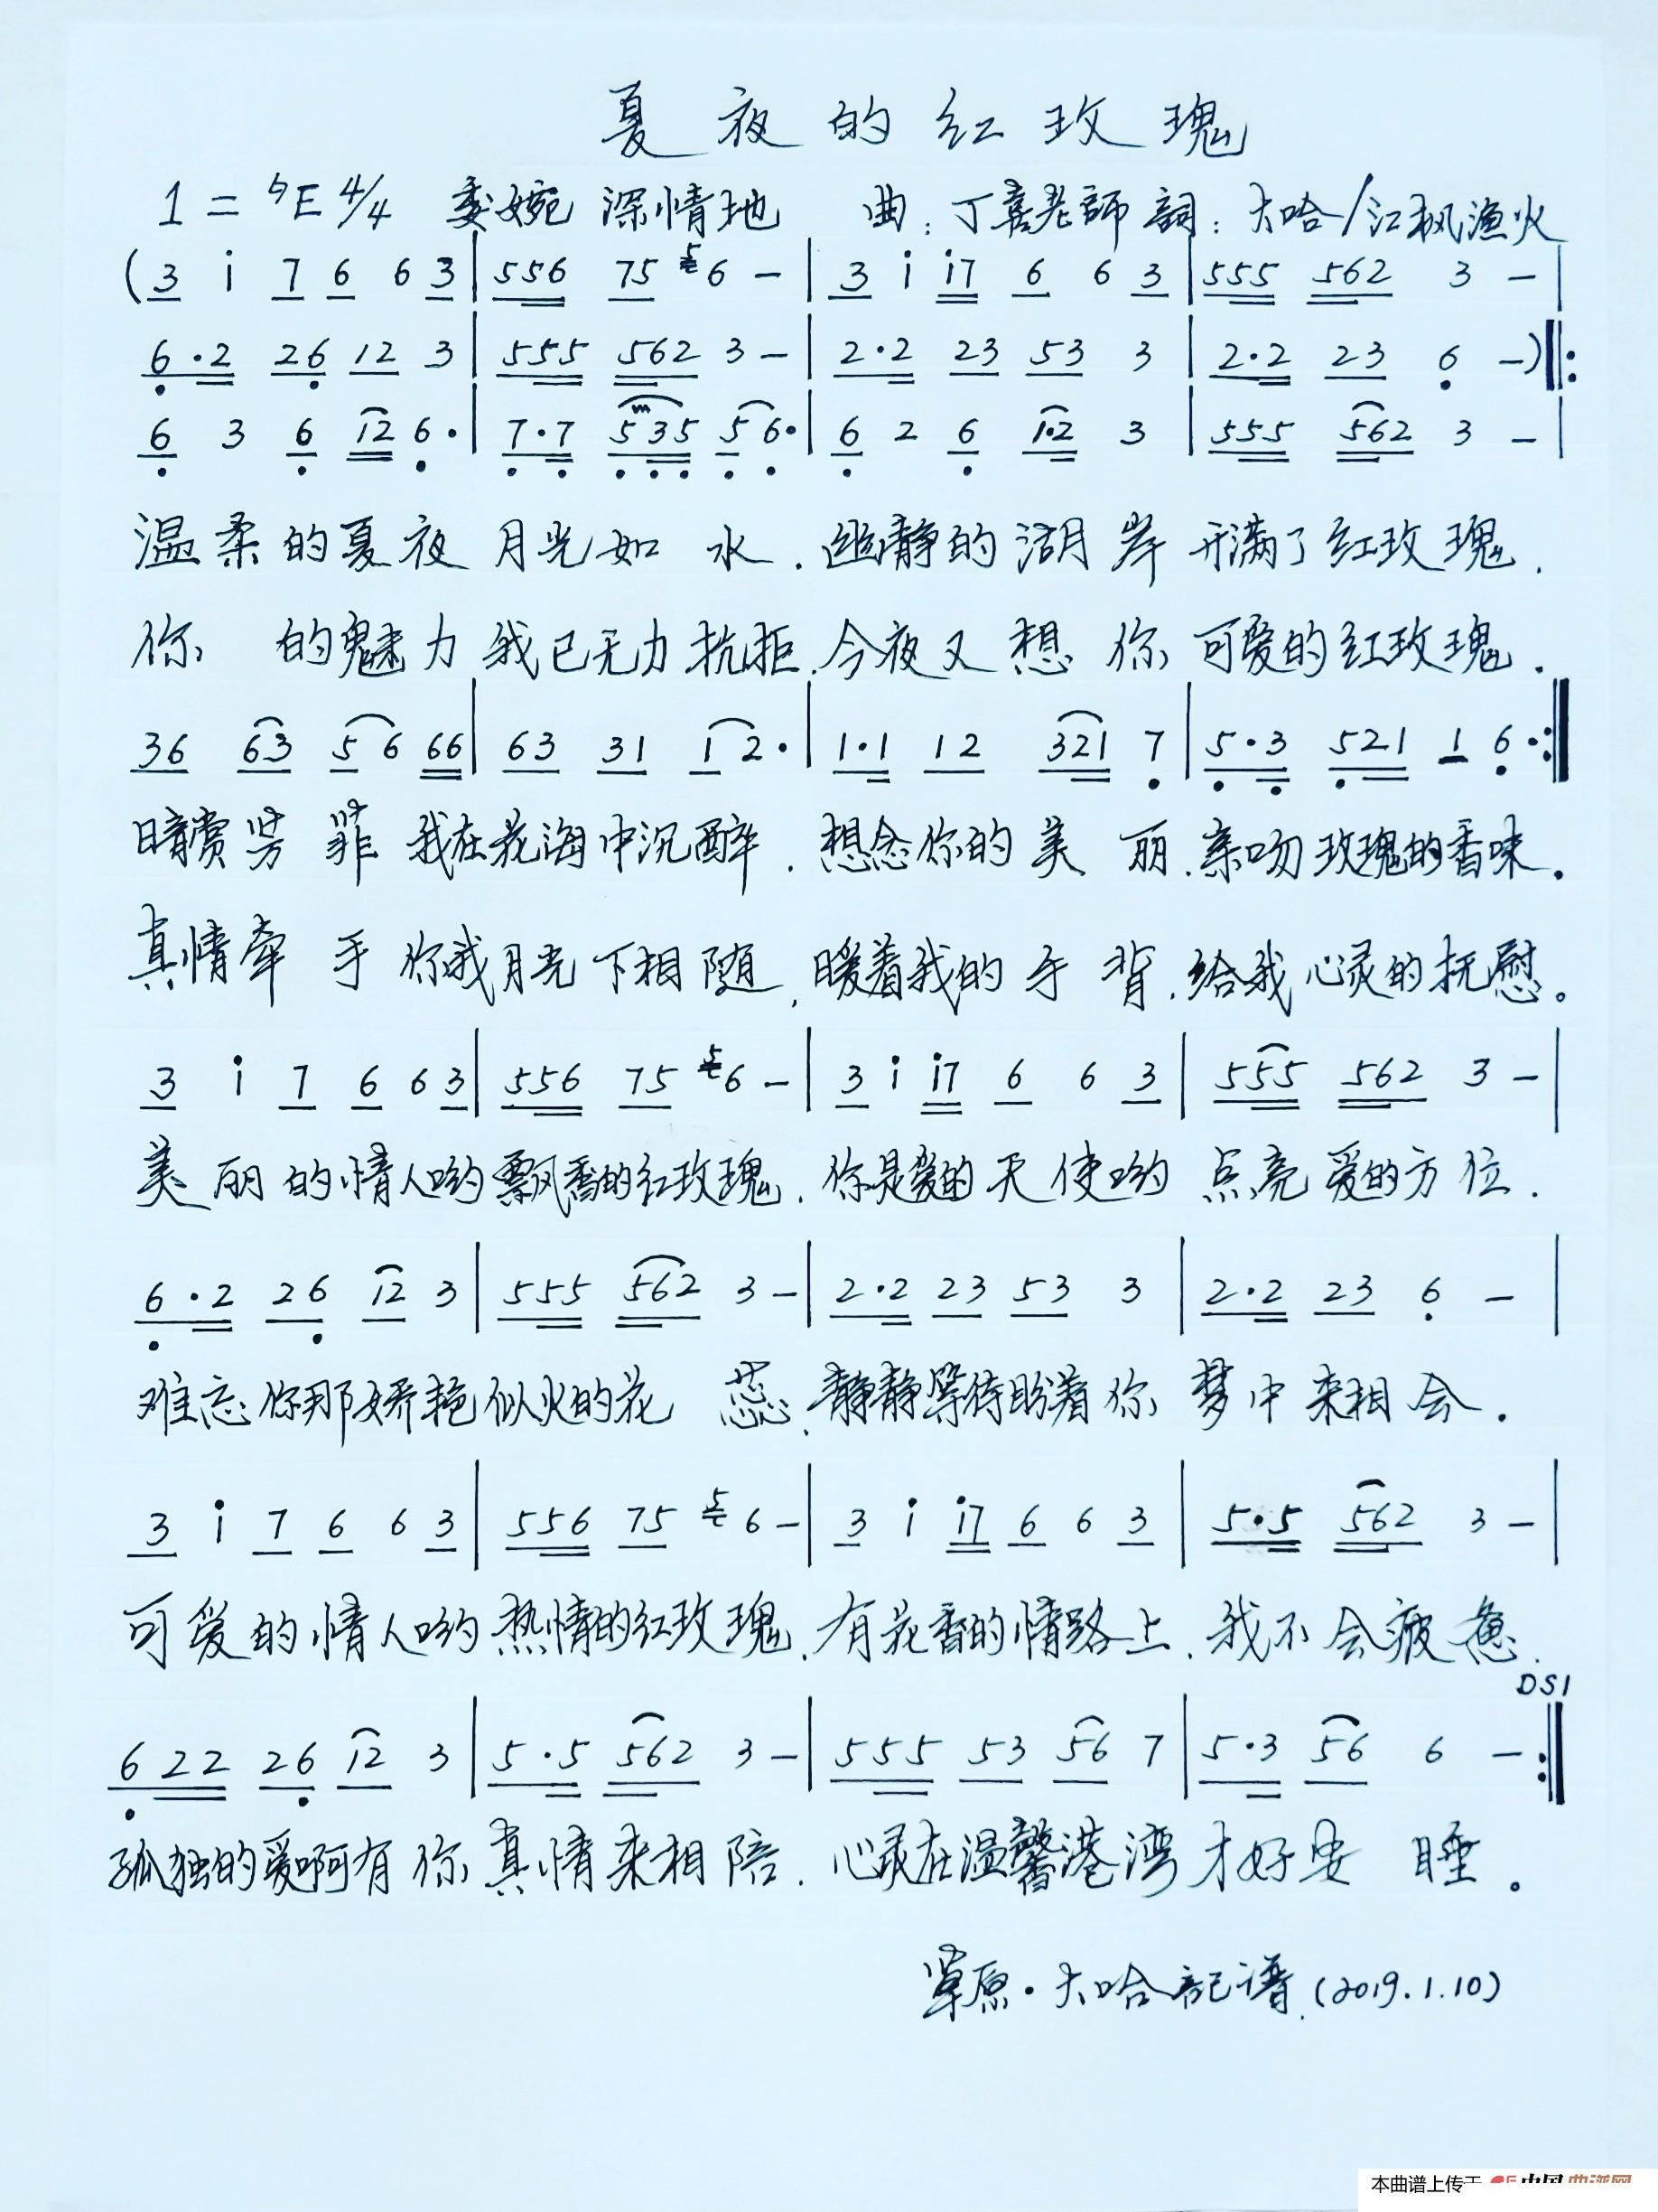 夏夜的红玫瑰
1=♭E 4/4 委婉 深情地 曲:丁喜老師 詞:大哈/江枫渔火
(3 i 7 6 6 3 | 556 75 5 6 - | 3 i i7 6 6 3 | 555 562 3 - |
6·2 26 12 3 | 555 562 3 - | 2·2 23 53 3 | 2·2 23 6 -)‖:
6 3 6 12 6· | 7·7 535 5 6· | 6 2 6 1·2 3 | 555 562 3 - |
温柔的夏夜 月光如 水.幽静的湖岸 开满了红玫瑰.
你 的魅力 我已无力抗拒.今夜又想 你 可爱的红玫瑰.
36 63 5 6 66 | 63 31 1 2· | 1·1 12 321 7 | 5·3 521 1 6· :‖
暗赏芳 菲 我在花海中沉醉.想念你的美 丽.亲吻玫瑰的香味。
真情牵 手 你我月光下相随,暖着我的手 背.给我心灵的抚慰。
3 i 7 6 6 3 | 556 75 5 6 - | 3 i i7 6 6 3 | 555 562 3 - |
美丽的情人哟飘香的红玫瑰.你是爱的天使哟 点亮爱的方位.
6·2 26 12 3 | 555 562 3 - | 2·2 23 53 3 | 2·2 23 6 - |
难忘你那娇艳似火的花 蕊.静静等待盼着你 梦中来相会.
3 i 7 6 6 3 | 556 75 5 6 - | 3 i i7 6 6 3 | 5·5 562 3 - |
可爱的情人哟热情的红玫瑰.有花香的情路上.我不会疲惫.
DS1
622 26 12 3 | 5·5 562 3 - | 555 53 56 7 | 5·3 56 6 - :‖
孤独的爱啊有你 真情来相陪.心灵在温馨港湾才好安 睡。
草原·大哈記谱.(2019.1.10)
本曲谱上传于 中国曲谱网